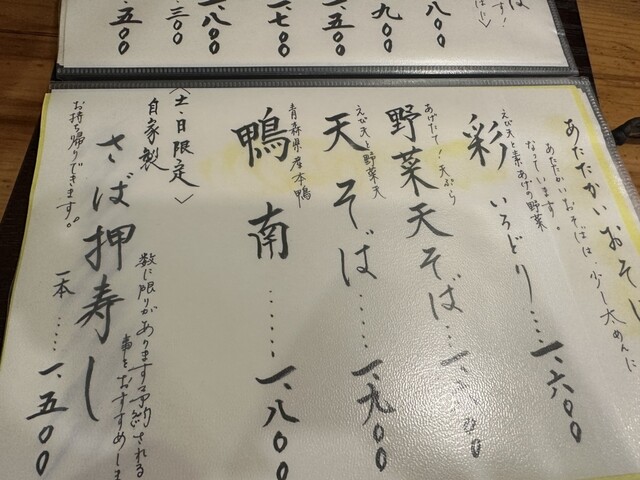 一、八〇〇
一、九〇〇
一、五〇〇
一、七〇〇
一、八〇〇
一、三〇〇
一、五〇〇
あたたかいおそ
あたたかいおそばは、少し太めんに
なっています。
えび天と素あげの野菜
彩 いろどり…一、六〇〇
あげたて!天ぷら
野菜天そば…一、八五〇
えび天と野菜天
天そば……一、九〇〇
青森県産本鴨
鴨南……一、八〇〇
〈土・日限定〉
自家製
さば押寿し
数に限りがあります。予約される
事をおすすめしま
お持ち帰りできます。
一本……一、五〇〇